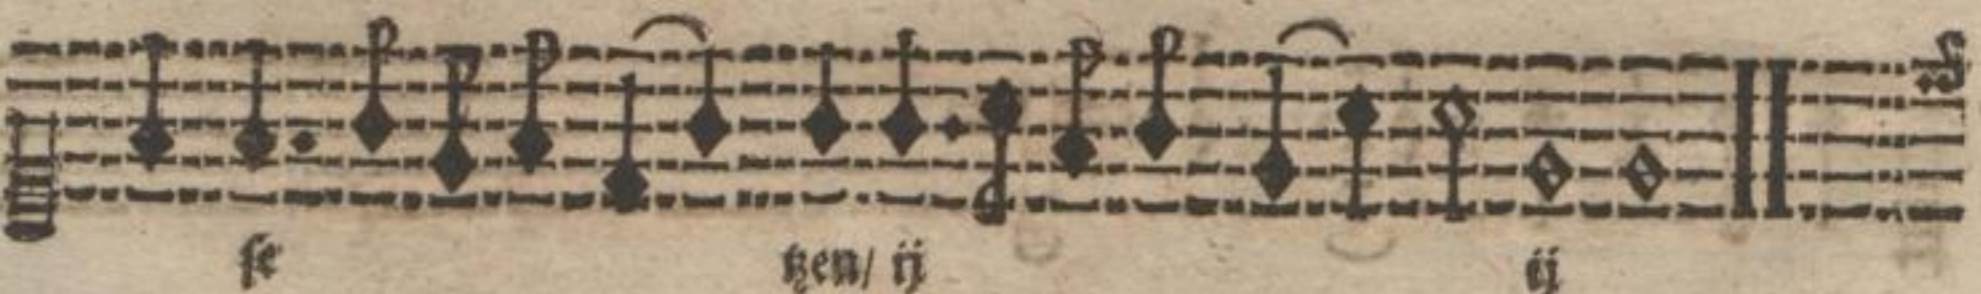 ſe tzen/ ij ij